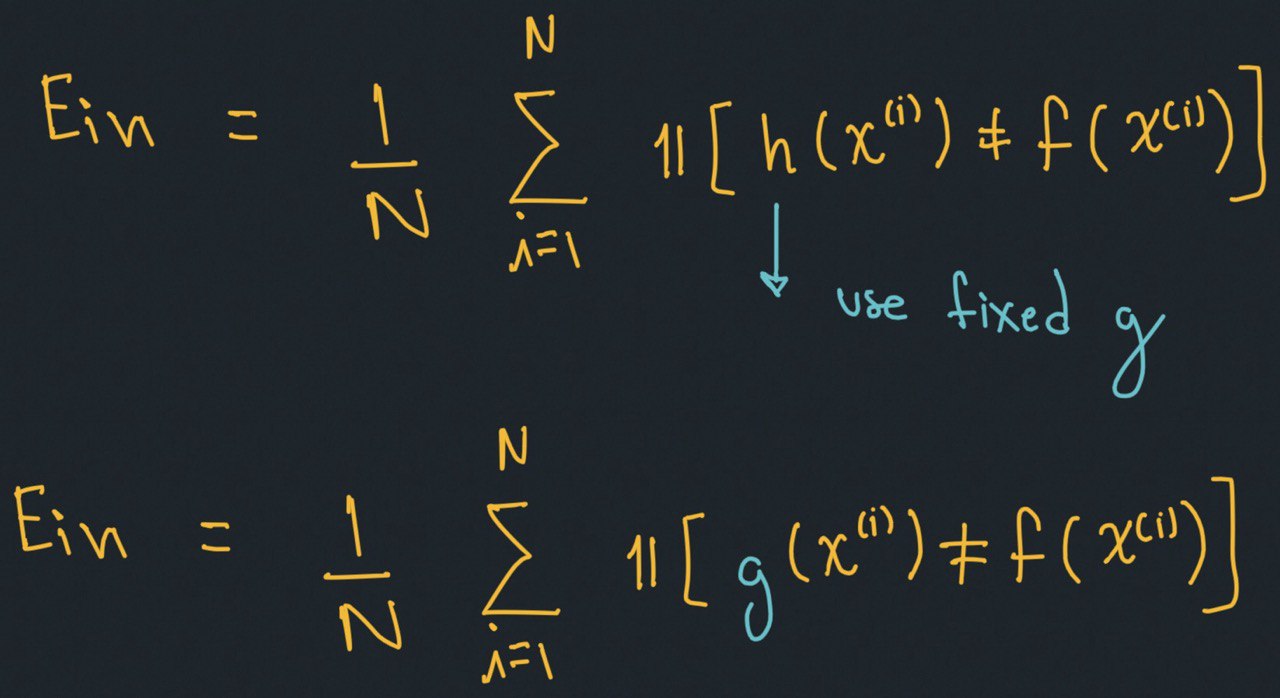 Ein = 1/N ∑_{i=1}^{N} 𝟙[h(x^{(i)}) ≠ f(x^{(i)})]
↓ use fixed g
Ein = 1/N ∑_{i=1}^{N} 𝟙[g(x^{(i)}) ≠ f(x^{(i)})]